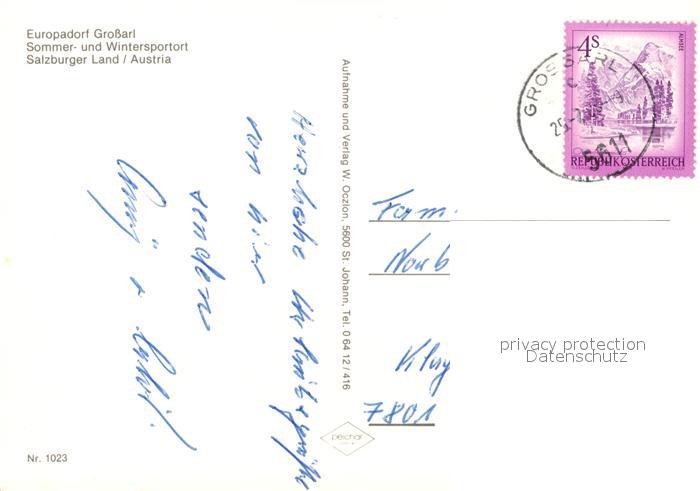 Europadorf Großarl
Sommer- und Wintersportort
Salzburger Land / Austria
Aufnahme und Verlag W. Oczlon, 5600 St. Johann, Tel. 0 64 12 / 416
4S
ALMSEE
REPUBLIK ÖSTERREICH
GROSSARL
5611
Herzliche Urlaubsgrüße
von hier
senden
Fam.
7801
privacy protection
Datenschutz
peichär
Nr. 1023